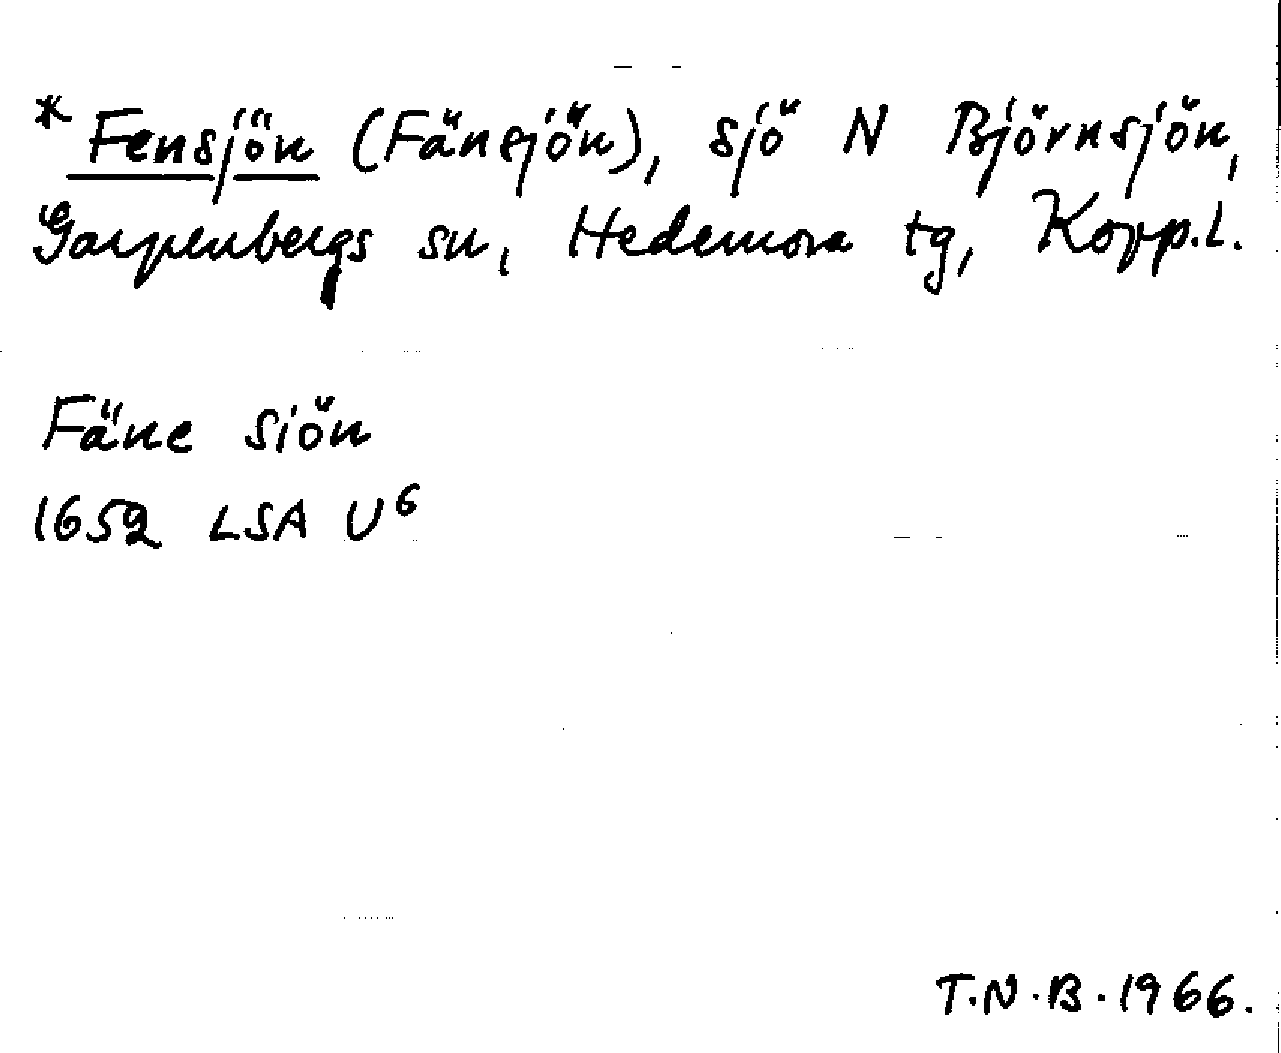 * Fensjön (Fänsjön), sjö N Björnsjön,
Garpenbergs sn, Hedemora tg, Kopp.l.
Fäne siön
1652 LSA U⁶
T.N.B. 1966.